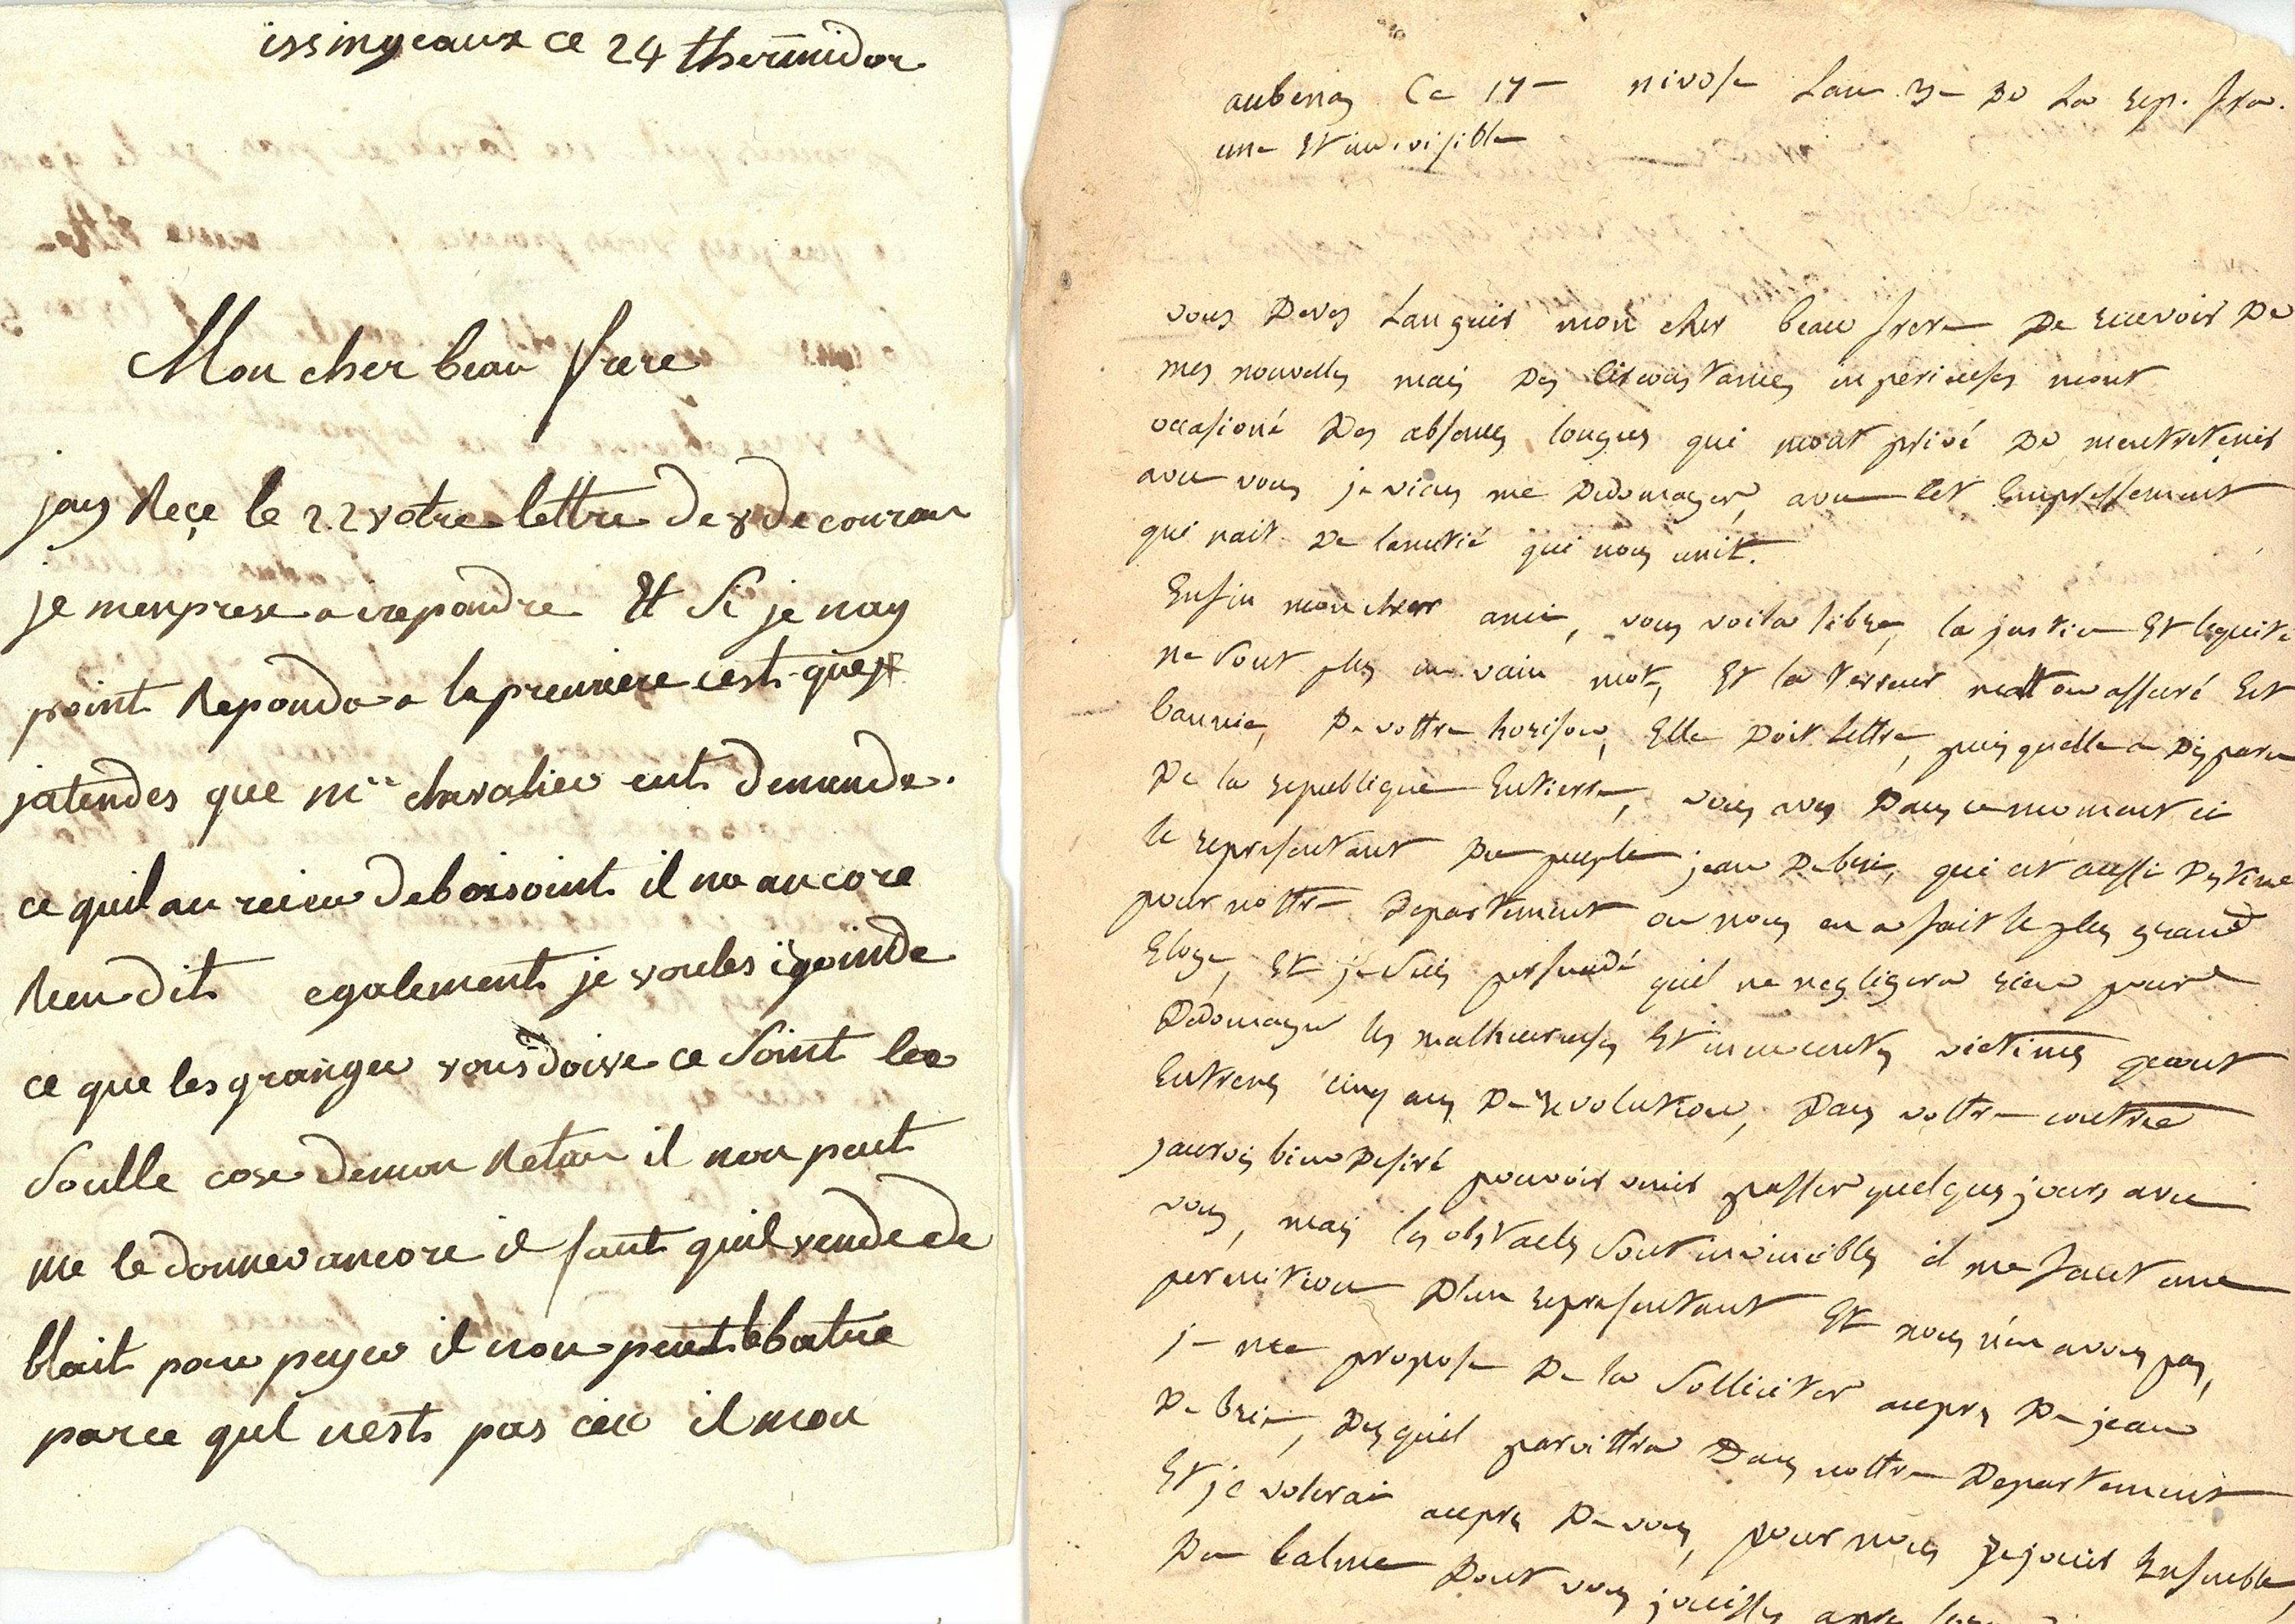 issingeaux ce 24 thermidor
Mon cher beau frere
jay Reçe le 22 votre lettre de 8 de couran
je menprese a repondre Et Si je nay
point Reponda a la premiere cest que
jatendes que mr chavalier eut demende
ce quil au de il na ancore
Rien dit egalement je voules
ce que les granger vous doive ce Soint les
Soulle cose demon Retar il non peut
me le donner ancore il faut quil vende de
blait pour peyer il non peut le batre
parce quil nest pas il mon
aubenas Ce 17 nivose Lan 3e de La rep. fra.
une Et indivisible
vous Deves Languir mon cher beau frere De recevoir De
mes nouvelles mais Des Circonstances imperieuses mont
occasioné Des absences longues qui mont privé De mentretenir
avec vous je viens me Dedomager, avec cet Empressement
qui nait De lamitié qui nous unit.
Enfin mon cher ami, vous voila libre, la justice Et lequité
ne Sont plus un vain mot, Et la terreur assuré Est
bannie, De vottre horison, Elle Doit lettre, puis quelle a Disparu
De la republique Entierre, vous aves Dans ce moment ci
le representant Du peuple jean Debrie, qui est aussi Destiné
pour nottre Departement on nous en a fait le plus grand
Eloge, Et je Suis persuadé quil ne negligera rien pour
Dedomager les malheureuses Et innocentes victimes quont
Entrenes cinq ans De revolution, Dans vottre contrée
jaurois bien Desiré pouvoir venir passer quelques jours avec
vous, mais les obstacles Sont invincibles il me faut une
permition Dun representant Et nous nen avons pas,
je me propose De la Solliciter aupres De jean
De brie, Des quil paroittra Dans nottre Departement
Et je volerai aupres De vous, pour nous rejouir Ensemble
Du Calme Dont vous jouisses